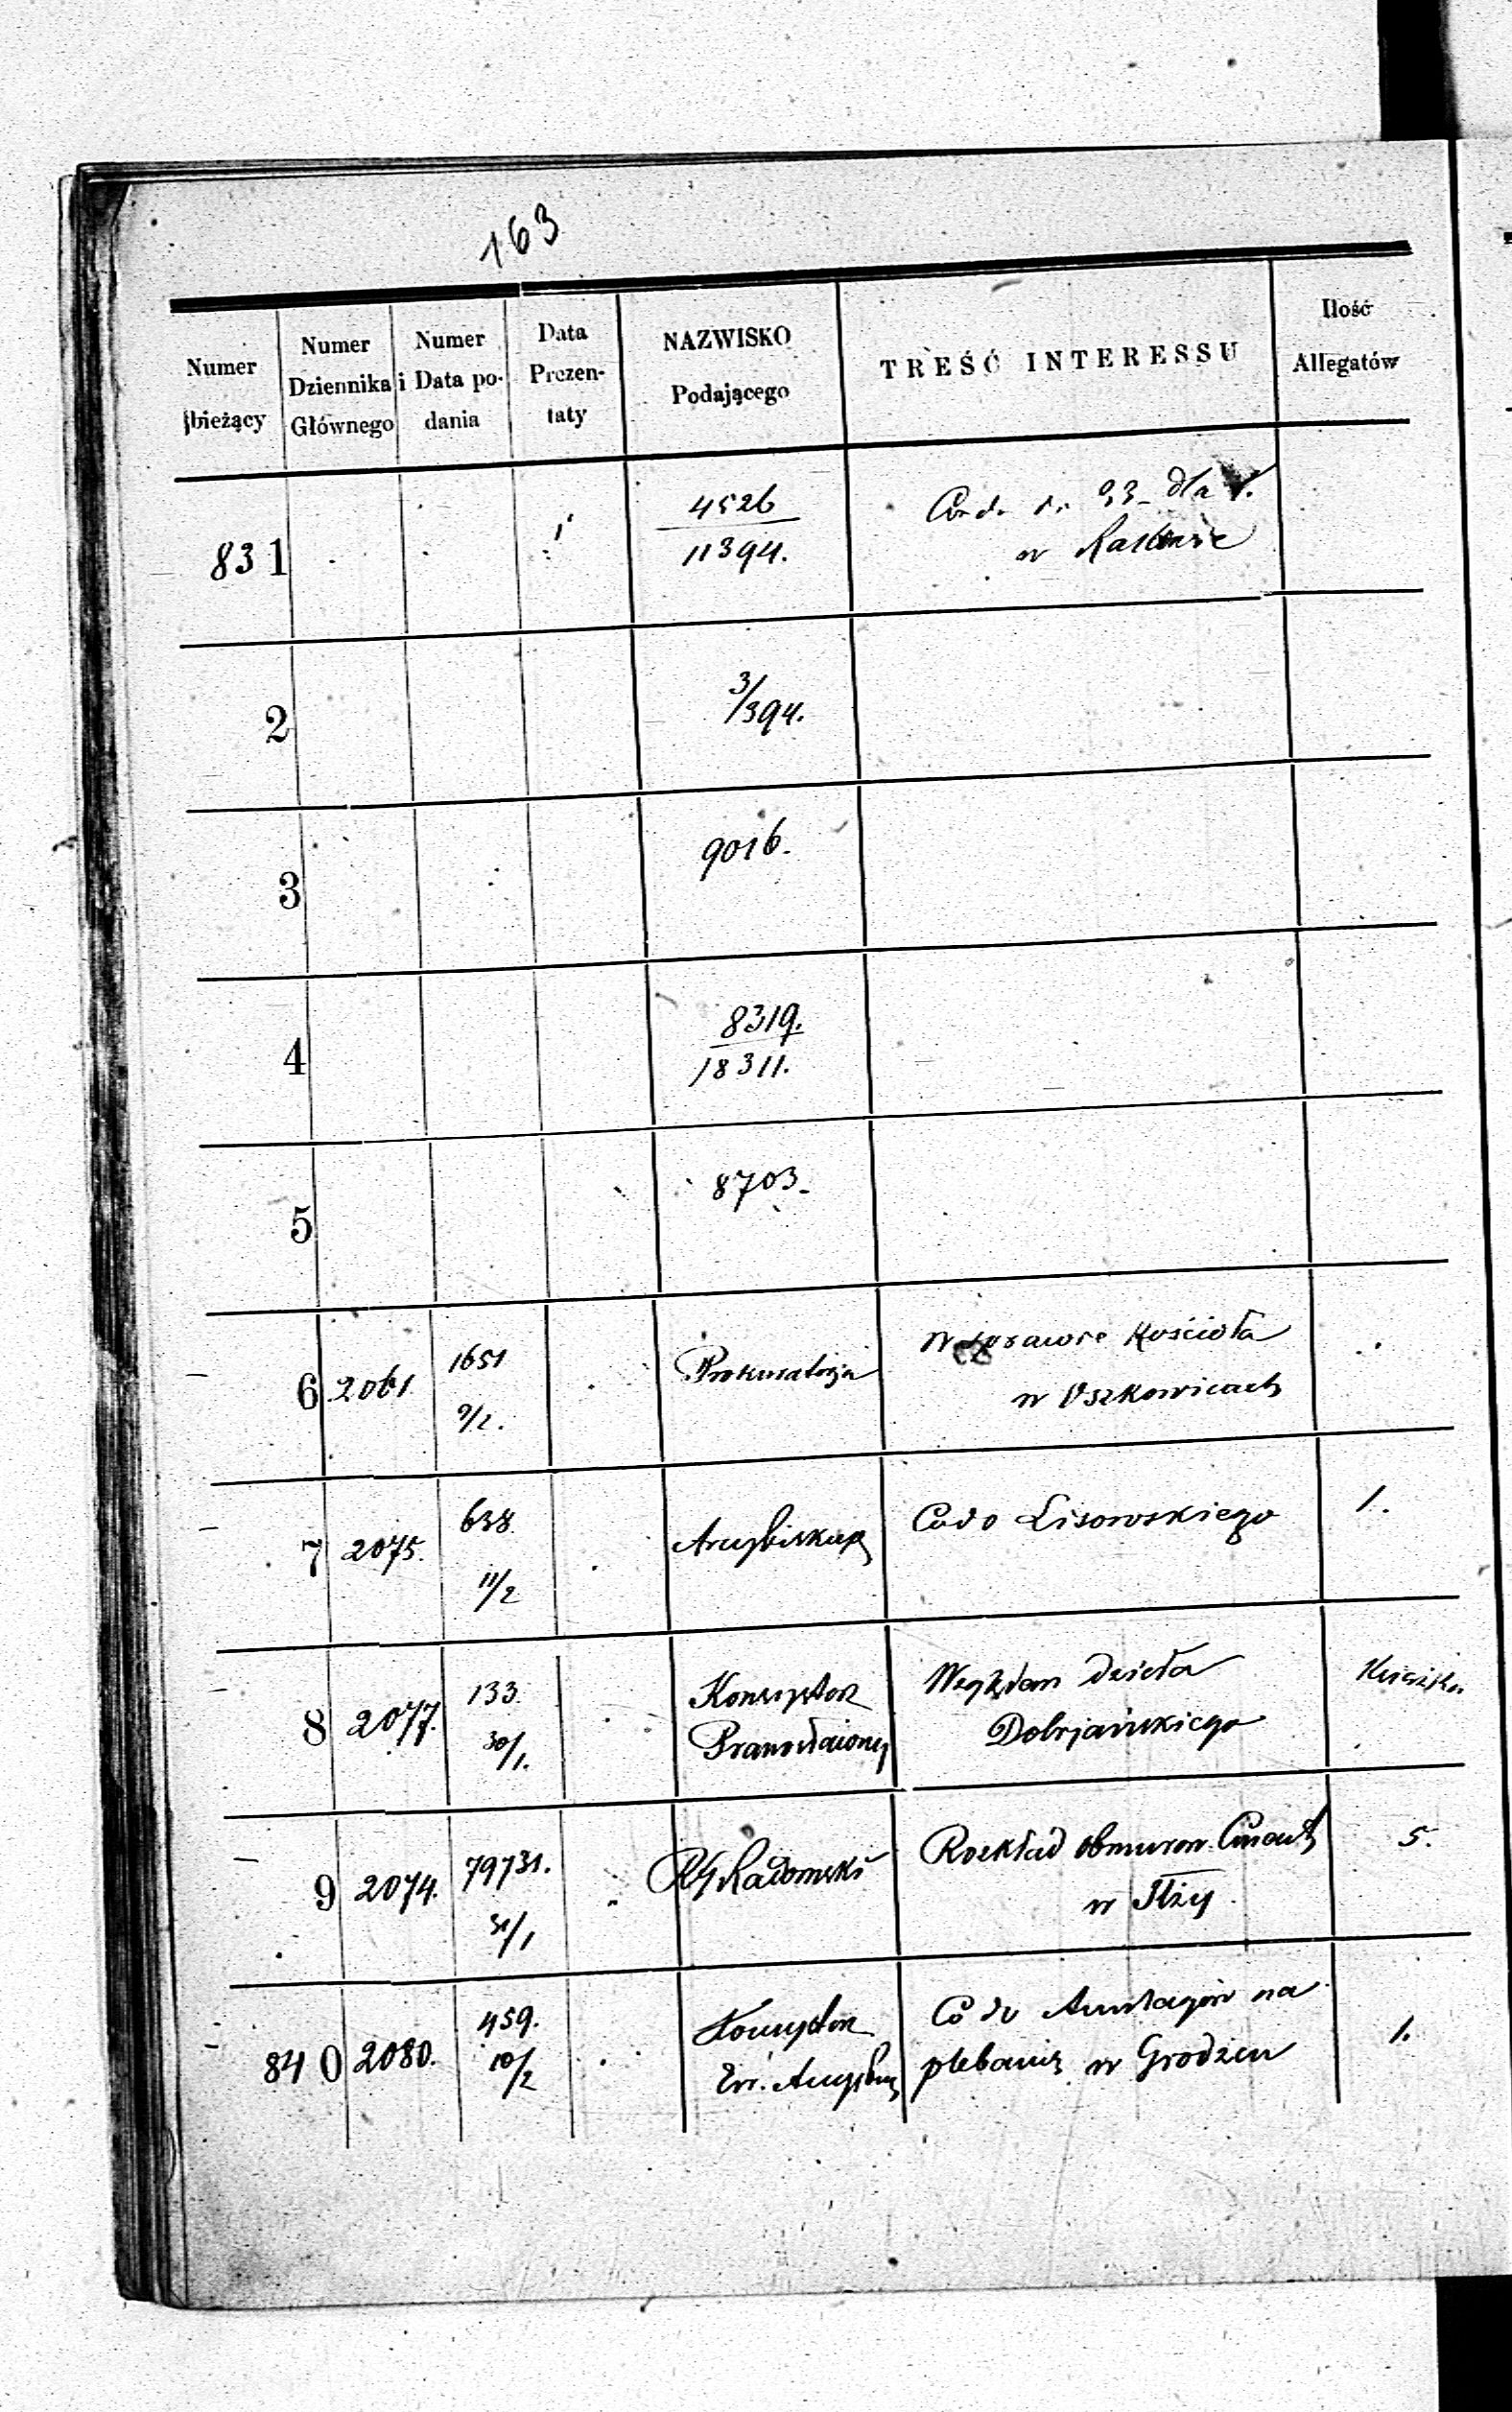 163
Numer bieżący
Numer Dziennika Głównego
Numer i Data podania
Data Prezentaty
NAZWISKO Podającego
TREŚĆ INTERESSU
Ilość Allegatów
831 4526 dla
11394. w
2 3/394.
3 9016.
4 8319.
18311.
5 8703.
6 2061 1651 Prokuratorja W sprawie Kościoła
9/2. w
7 2075. 638. Arcybiskup Co do Lisowskiego 1.
11/2
8 2077. 133. Konsystorz Względem dzieła
30/1. Prawosławny
9 2074. 79731. RG Radomski Rozkład obmurow. Cment 5.
31/1 w Iłży
840 2080. 459. Konsystorz Co do na 1.
10/2 plebanię w